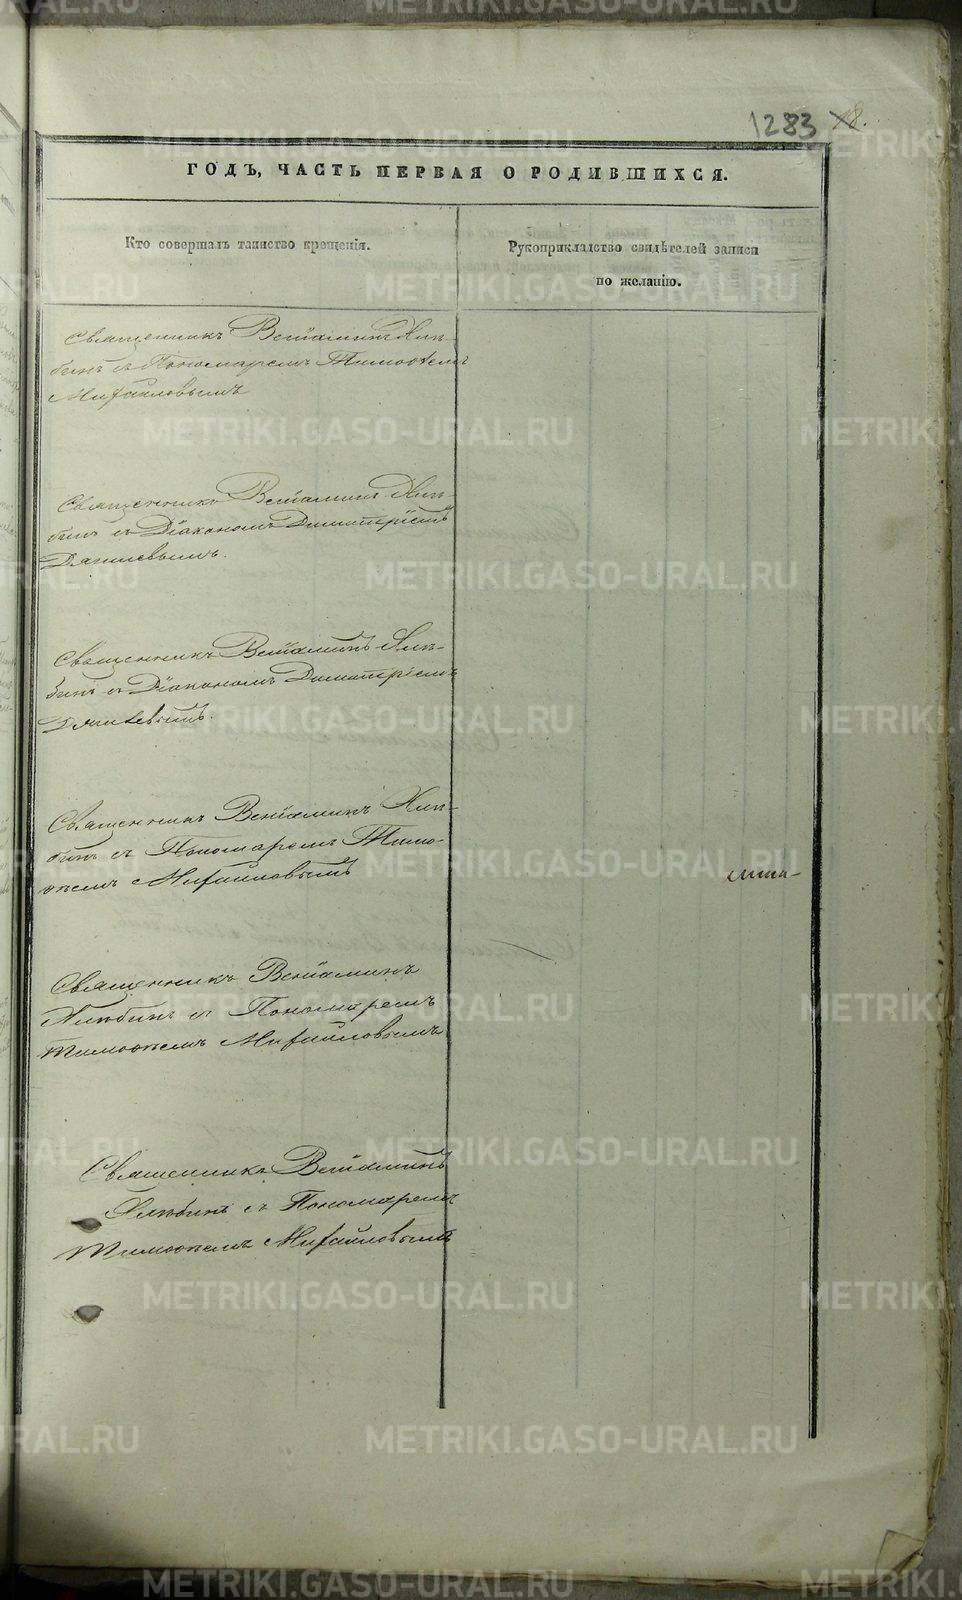 1283
ГОДЪ, ЧАСТЬ ПЕРВАЯ О РОДИВШИХСЯ.
Кто совершалъ таинство крещенія.
Рукоприкладство свидѣтелей записи
по желанію.
Священникъ Веніаминъ
съ Пономаремъ Тимофеемъ
Михайловымъ
Священникъ Веніаминъ
съ Діакономъ Димитріемъ
Священникъ Веніаминъ
съ Діакономъ Димитріемъ
Священникъ Веніаминъ
съ Пономаремъ Тимо-
ѳеемъ Михайловымъ
Священникъ Веніаминъ
съ Пономаремъ
Тимоѳеемъ Михайловымъ
Священникъ Веніаминъ
съ Пономаремъ
Тимоѳеемъ Михайловымъ
METRIKI.GASO-URAL.RU